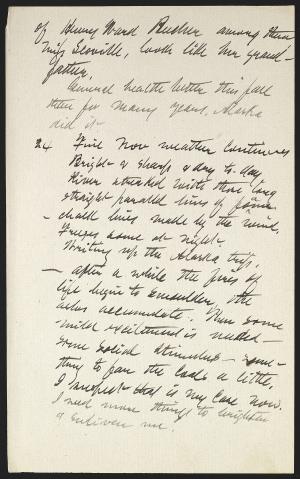 of Henry Ward Beecher among them
Miss Scoville, looks like her grand-
father.
General health better this fall
than for many years. Alaska
did it.
24 Fine Nov weather continues
Bright & sharp & day to day
River streaked with those long
straight parallel lines of foam
- chalk lines made by the wind.
Freezes some at night.
Writing up the Alaska trip.
— After a while the fires of
life begin to smoulder, the
ashes accumulate. Then some
mild excitement is needed -
some social stimulus - some-
thing to fan the coals a little.
I suspect that is my case now.
I need more things to brighten
& enliven me.